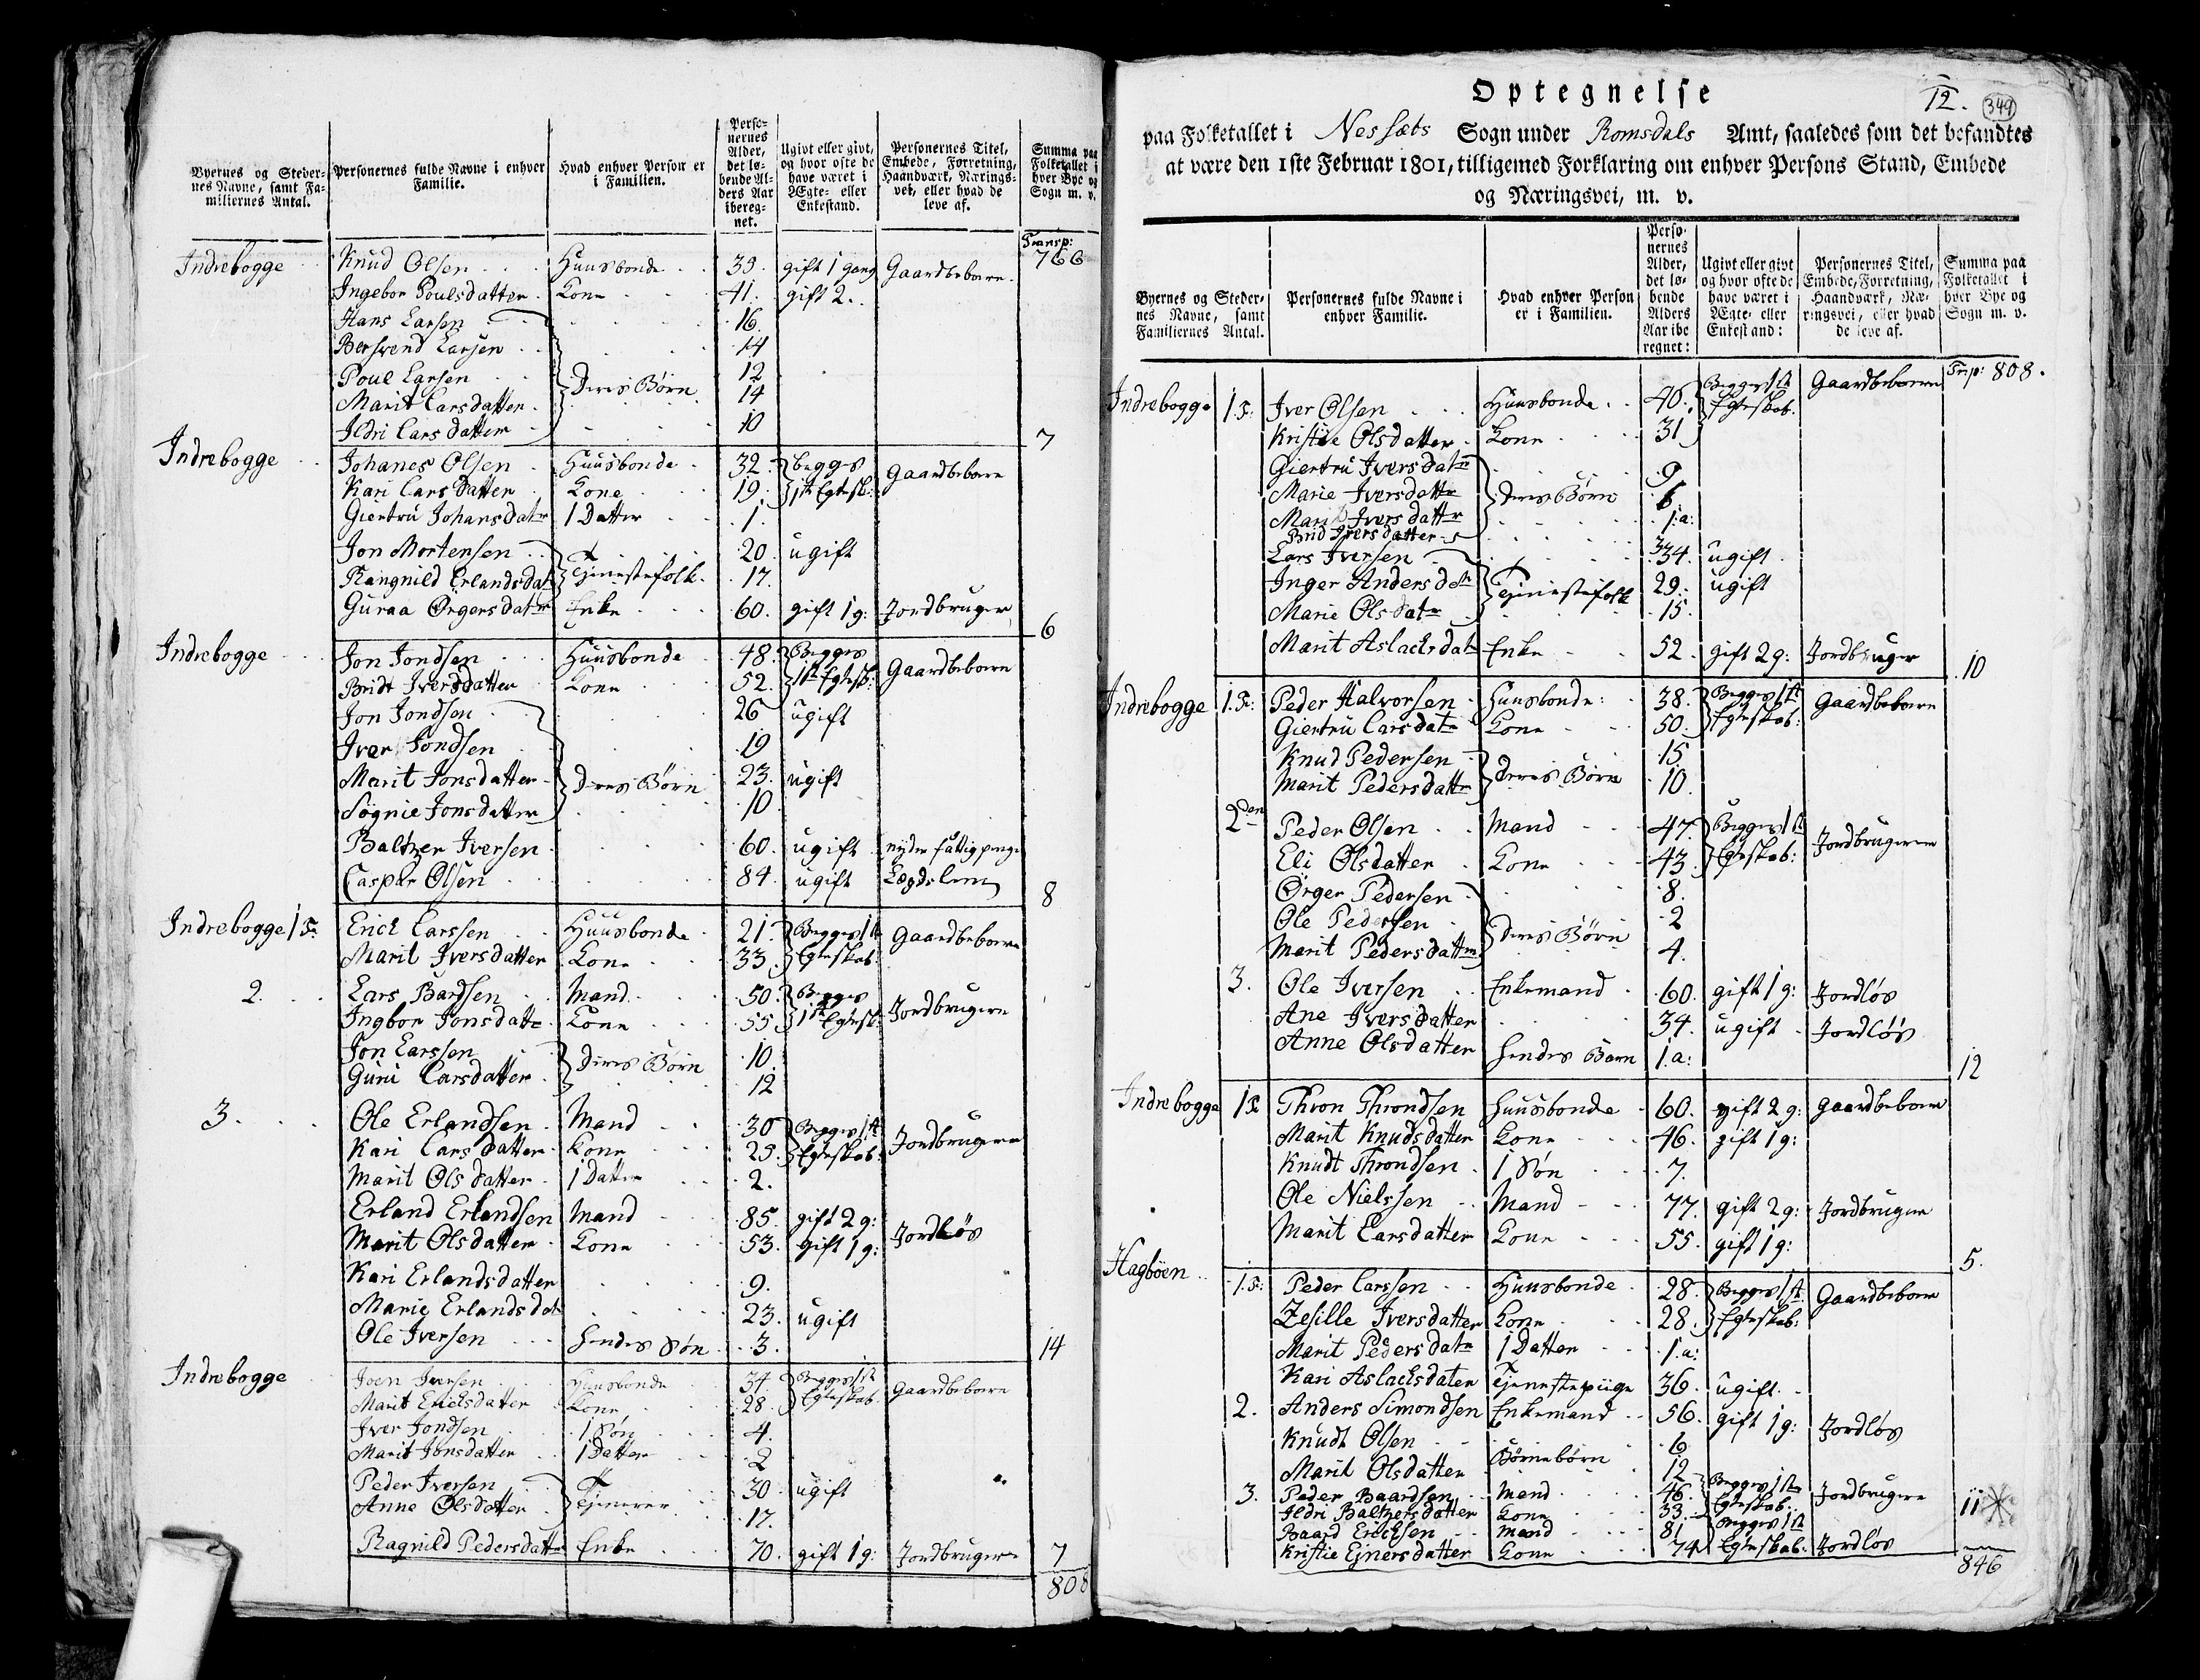 Byernes og Steder-
nes Navne, samt Fa-
miliernes Antal.
Personernes fulde Navne i enhver
Familie.
Hvad enhver Person er
i Familien.
Perso-
nernes
Alder,
det lø-
bende Al-
ders Aar
ibereg-
net.
Ugivt eller givt,
og hvor ofte de
have været i
Ægte- eller
Enkestand.
Personernes Titel,
Embede, Forretning,
Haandværk, Nærings-
vei, eller hvad de
leve af.
Summa paa
Folketallet i
hver Bye og
Sogn m. v.
Transp:
766
Indrebogge Knud Olsen Huusbonde 39. gift 1 gang Gaardbeboere
Ingebor Poulsdatter Kone 41. gift 2.
Hans Larsen 16.
Bersvend Larsen 14
Poul Larsen Deres Børn 12
Marit Larsdatter 14
Ildri Larsdatter 10
7
Indrebogge Johanes Olsen Huusbonde 32 begges Gaardbeboere
Kari Larsdatter Kone 19. 1ste Egtesk:
Giertru Johansdatr 1 Datter 1.
Jon Mortensen 20. ugift
Rangnild Erlandsdatr Tienestefolk 17.
Guraa Örgersdatr Enke 60. gift 1 g: Jordbruger
6
Indrebogge Jon Jondsen Huusbonde 48. Begges Gaardbeboere
Bridt Iversdatter Kone 52. 1ste Egtesk:
Jon Jondsen 26 ugift
Iver Jondsen 19
Marit Jonsdatter Deres Börn 23. ugift
Sögnie Jonsdatter 10
Baltzer Iversen 60. ugift nyder fattig penge
Caspar Olsen 84. ugift Lægdslem
8
Indrebogge 1 F: Erich Larssen Huusbonde 21. Begges 1st Gaardbeboere
Marit Iversdatter Kone 33. Egteskab
2. Lars Bardsen Mand 50. Begges Jordbrugere
Ingbor Jonsdattr Kone 55 1ste Egtesk:
Jon Larssen Deres Börn 10.
Guri Larsdatter 12
3. Ole Erlandsen Mand 30 Begges 1st Jordbrugere
Kari Larsdatter Kone 29. Egteskab:
Marit Olsdatter 1 Datter 2.
Erland Erlandsen Mand 85. gift 2 g: Jordløs
Marit Olsdatter Kone 53. gift 1 g:
Kari Erlandsdatter 9.
Marie Erlandsdat 23. ugift
Ole Iversen hendes Søn 3.
14
Indrebogge Joen Iversen Huusbonde 34. Begges 1st Gaardbeboere
Marit Erichsdatter Kone 28. Egteskab
Iver Jondsen 1 Søn 4.
Marit Jonsdatter 1 Datter 2
Peder Iversen Tienerer 30. ugift
Anne Olsdatter 17.
Ragnild Pedersdattr Enke 70. gift 1 g: Jordbrugere 7
808
12. 349
Optegnelse
paa Folketallet i Nessets Sogn under Romsdals Amt, saaledes som det befandtes
at være den 1ste Februar 1801, tilligemed Forklaring om enhver Persons Stand, Embede
og Næringsvei, m. v.
Byernes og Steder-
nes Navne, samt
Familiernes Antal.
Personernes fulde Navne i
enhver Familie.
Hvad enhver Person
er i Familien.
Perso-
nernes
Alder,
det lø-
bende
Alders
Aar ibe
regnet:
Ugivt eller givt
og hvor ofte de
have været i
Ægte- eller
Enkestand:
Personernes Titel,
Embede, Forretning,
Haandværk, Næ-
ringsvei, eller hvad
de leve af.
Summa paa
Folketallet i
hver Bye og
Sogn m. v.
Trsp: 808.
Indrebogge 1 F: Iver Olsen Huusbonde 40. Begges 1st Gaardbeboere
Kristie Olsdatter Kone 31 Egteskab.
Giertru Iversdatr 9
Marie Iversdattr Deres Børn 6.
Marit Iversdattr 1. a:
Brid Iversdatter 3
Lars Iversen 34. ugift
Inger Andersdatr Tienestefolk 29. ugift
Marie Olsdatr 15.
Marit Aslachsdatr Enke 52. gift 2 g: Jordbruger
10
Indrebogge 1. F: Peder Halvorsen Huusbonde: 38. Begges 1st Gaardbeboere
Giertru Larsdatr Kone 50. Egteskab:
Knud Pedersen Deres Børn 15
Marit Pedersdattr 10.
2den Peder Olsen Mand 47. Begges 1st Jordbrugere
Eli Olsdatter Kone 43. Egteskab:
Örger Pedersen 8.
Ole Pedersen Deres Børn 2
Marit Pedersdatter 4.
3. Ole Iversen Enkemand 60. gift 1 g: Jordløs
Ane Iversdatter 34. ugift Jordløs
Anne Olsdatter hendes Barn 1. a:
12
Indrebogge 1 F Thron Throndsen Huusbonde 60. gift 2 g: Gaardbeboere
Marit Knudsdatter Kone 46. gift 1 g:
Knudt Throndsen 1 Søn 7.
Ole Nielssen Mand 77. gift 2 g: Jordbrugere
Marit Larsdatter Kone 55. gift 1 g:
5.
Hagböen 1. F: Peder Larssen Huusbonde 28. Begges 1st Gaardbeboere
Zesille Iversdatter Kone 28. Egteskab:
Marit Pedersdatr 1 Datter 1. a:
Kari Aslachsdater Tienestepiige 36. ugift
2. Anders Simondsen Enkemand 56. gift 1 g: Jordløs
Knudt Olsen Börnebörn 6
Marit Olsdatter 12
3. Peder Baardsen Mand 46. Begges 1ste Jordbrugere 11
Ildri Baltzersdatter Kone 53. Egteskab:
Baard Erichsen Mand 81 Begges 1st
Kristie Ejnersdatter Kone 74 Egteskab. Jordløs
846